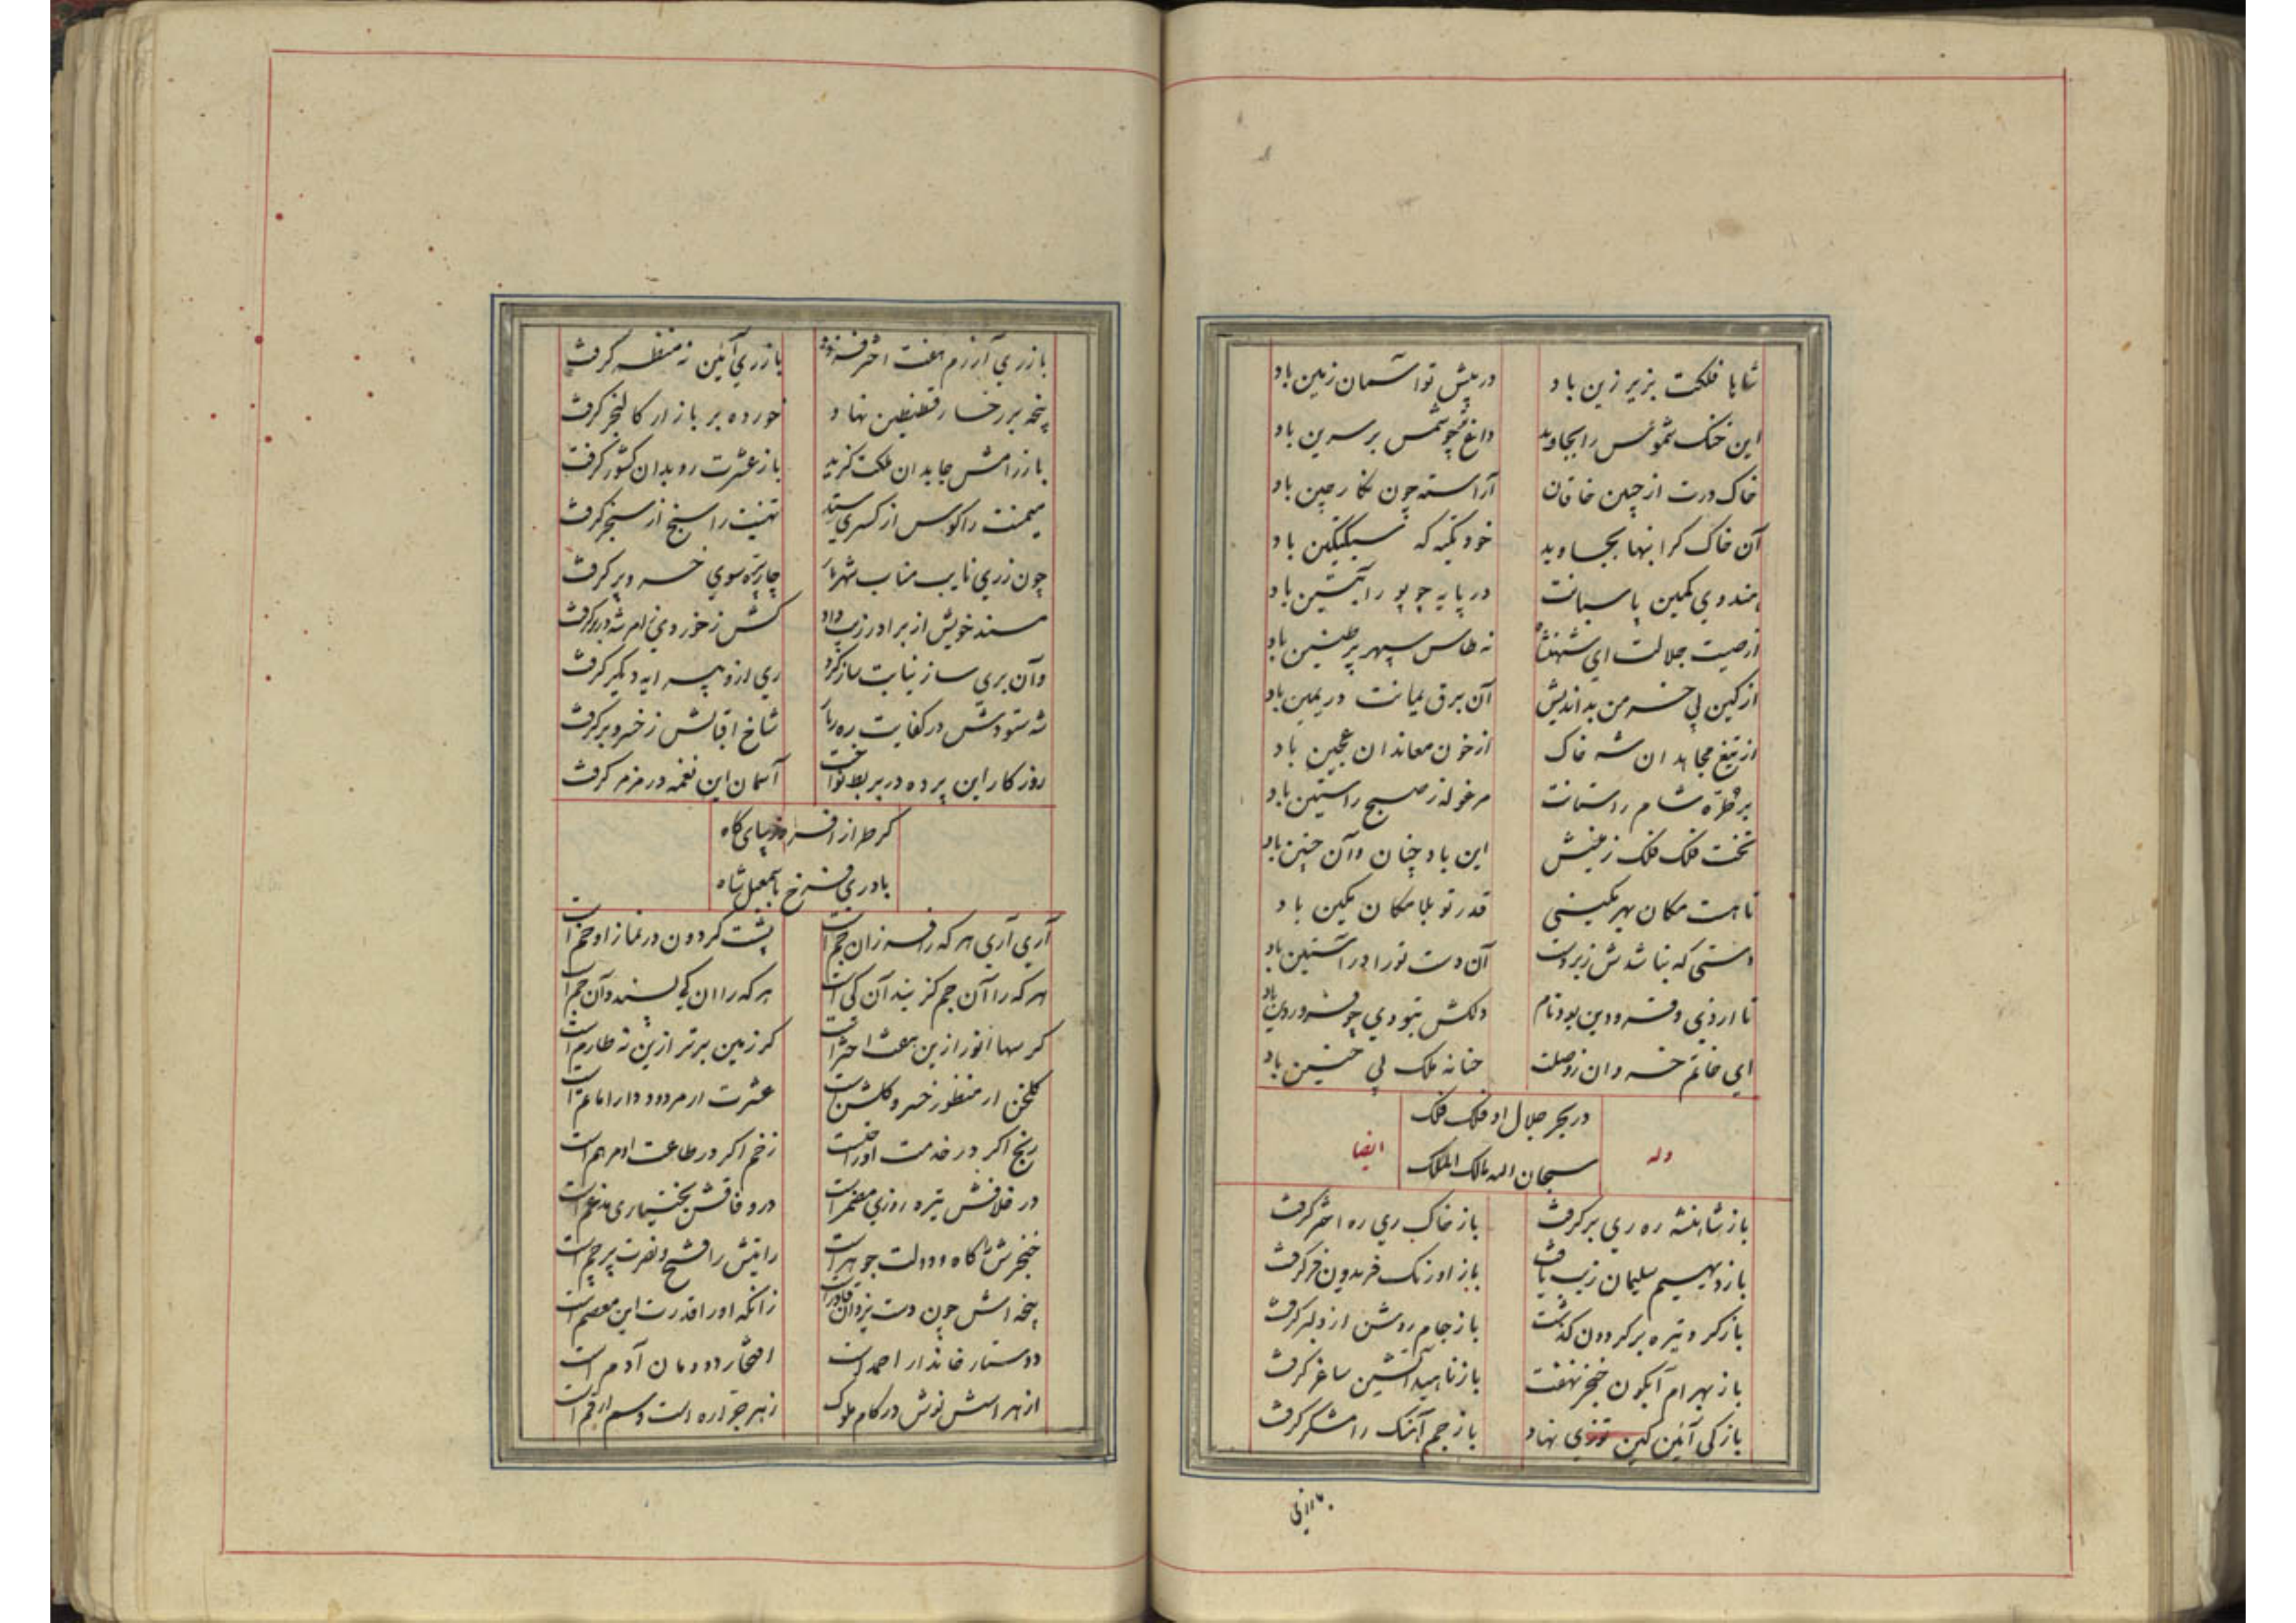 شاها فلکت بزیر زین باد
در پیش تو آسمان زمین باد
این خنک شموس را بجاوید
داغ چو شمس بر سرین باد
خاک درت از جبین خاقان
آراسته چون نگار چین باد
آن خاک گرانبها بجاوید
خود تکیه که سبکتکین باد
هندوی کمین پاسبانت
در پایه چو پور آبتین باد
از صیت جلالت ای شهنشاه
نه طاس سپهر پر طنین باد
از کین پی خرمن بداندیش
آن برق یمانت در یمین باد
از تیغ مجاهدان شه خاک
از خون معاندان عجین باد
بر طرّه شام راستانت
مرغوله ز صبح راستین باد
تخت فلک فلک زمینش
این باد چنان و آن چنین باد
تا هست مکان بهر مکینی
قدر تو بلامکان مکین باد
دستی که نباشدش زبردست
آن دست تو را در آستین باد
تا اردی و فرودین بود نام
دلکش بتو دی چو فروردین باد
ای خاتم خسروان ز وصلت
حنانه ملک پی حنین باد
وله
در بحر جلال او فلک فلک
ایضا
سبحان الله مالک الملک
باز شاهنشه ره ری بر گرفت
باز خاک ری ره اختر گرفت
باز دیهیم سلیمان زیب یافت
باز اورنک فریدون فر گرفت
باز گرد تیره بر گردون گذشت
باز جام روشن از دلبر گرفت
باز بهرام آبگون خنجر نهفت
باز ناهید آتشین ساغر گرفت
باز کی آئین کین توزی نهاد
باز جم آهنک رامشگر گرفت
باز ری آزرم هفت اختر فزود
باز ری آئین نه منظر گرفت
پنجه بر رخسار قسطنطین نهاد
خورده بر بازار کالنجر گرفت
باز رامش جا بدان ملکت گزید
باز عشرت ره بدان کشور گرفت
میمنت را کوس از کسری ستد
تهنیت را سنج از سنجر گرفت
چون ز ری نایب مناب شهریار
چار تره سوی خسرو بر گرفت
مسند خویش از برادر زیب داد
وآن بری ساز نیابت ساز کرد
ری ازو پیرایه دیگر گرفت
شه ستودش در کفایت ره ربار
شاخ اقبالش ز خسرو بر گرفت
روزگار این پرده در بربط نواخت
آسمان این نغمه در مزمر گرفت
کر طراز افسر و زیبای گاه
باد ری فرخ باسمعیل شاه
آری آری هر که را فر زان جم است
پشت گردون در نماز او خم است
هر که را آن جم گزیند آن کی است
هر که را آن کی پسندد آن جم است
گر سها انور ازین هفت اختر است
گر زمین برتر ازین نه طارم است
گلخن ار منظور خسرو گلشن است
عشرت ار مردود دارا ماتم است
رنج اگر در خدمت او راحتست
زخم اگر در طاعت او مرهم است
در خلافش تیره روزی مضمر است
در وفاقش بختیاری مدغم است
خنجرش را کاه و دولت جوهر است
رایتش را فتح و نصرت پرچم است
پنجه اش چون دست یزدان قادر است
زانکه او را قدرت این معصم است
دوستار خاندار احمد است
افتخار دودمان آدم است
از هراسش نوش در کام ملوک
زهر جراره است و سم ارقم است
باز ری